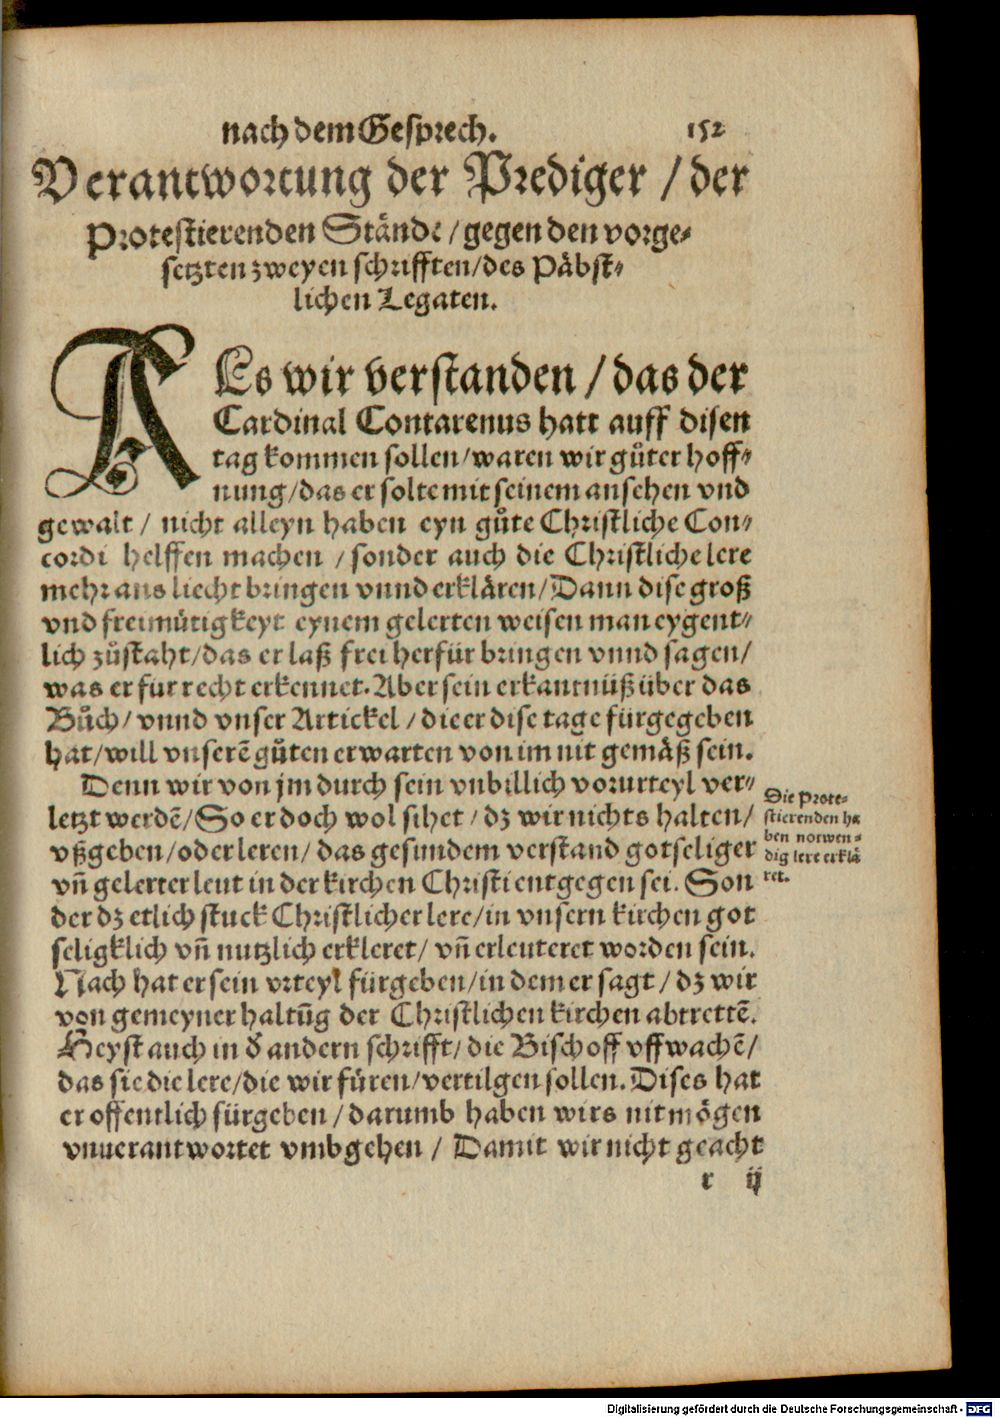 nach dem Gesprech. 152
Verantwortung der Prediger / der
Protestierenden Stände / gegen den vorge⸗
setzten zweyen schrifften / des Päbst⸗
lichen Legaten.
ALs wir verstanden / das der
Cardinal Contarenus hatt auff disen
tag kommen sollen / waren wir gůter hoff⸗
nung / das er solte mit seinem ansehen vnd
gewalt / nicht alleyn haben eyn gůte Christliche Con⸗
cordi helffen machen / sonder auch die Christliche lere
mehr ans liecht bringen vnnd erklären / Dann dise groß
vnd freimütigkeyt eynem gelerten weisen man eygent⸗
lich zůstaht / das er laß frei herfür bringen vnnd sagen /
was er für recht erkennet. Aber sein erkantnüß über das
Bůch / vnnd vnser Artickel / die er dise tage fürgegeben
hat / will vnserẽ gůten erwarten von im nit gemäß sein.
Denn wir von jm durch sein vnbillich vorurteyl ver⸗
letzt werdẽ / So er doch wol sihet / dz wir nichts halten /
vßgeben / oder leren / das gesundem verstand gotseliger
vñ gelerter leut in der kirchen Christi entgegen sei. Son
der dz etlich stuck Christlicher lere / in vnsern kirchen got
seligklich vñ nutzlich erkleret / vñ erleuteret worden sein.
Nach hat er sein vrteyl fürgeben / in dem er sagt / dz wir
von gemeyner haltũg der Christlichen kirchen abtrettẽ.
Heyst auch in ď andern schrifft / die Bischoff vffwachẽ /
das sie die lere / die wir füren / vertilgen sollen. Dises hat
er offentlich fürgeben / darumb haben wirs nit mögen
vnuerantwortet vmbgehen / Damit wir nicht geacht
r ij
Die Prote⸗
stierenden ha
ben notwen⸗
dig lere erklä
ret.
Digitalisierung gefördert durch die Deutsche Forschungsgemeinschaft - DFG